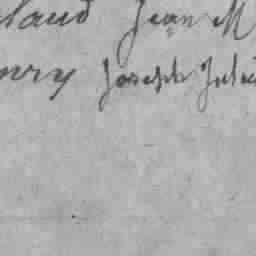 laud Jean M
nry Joseph Jule